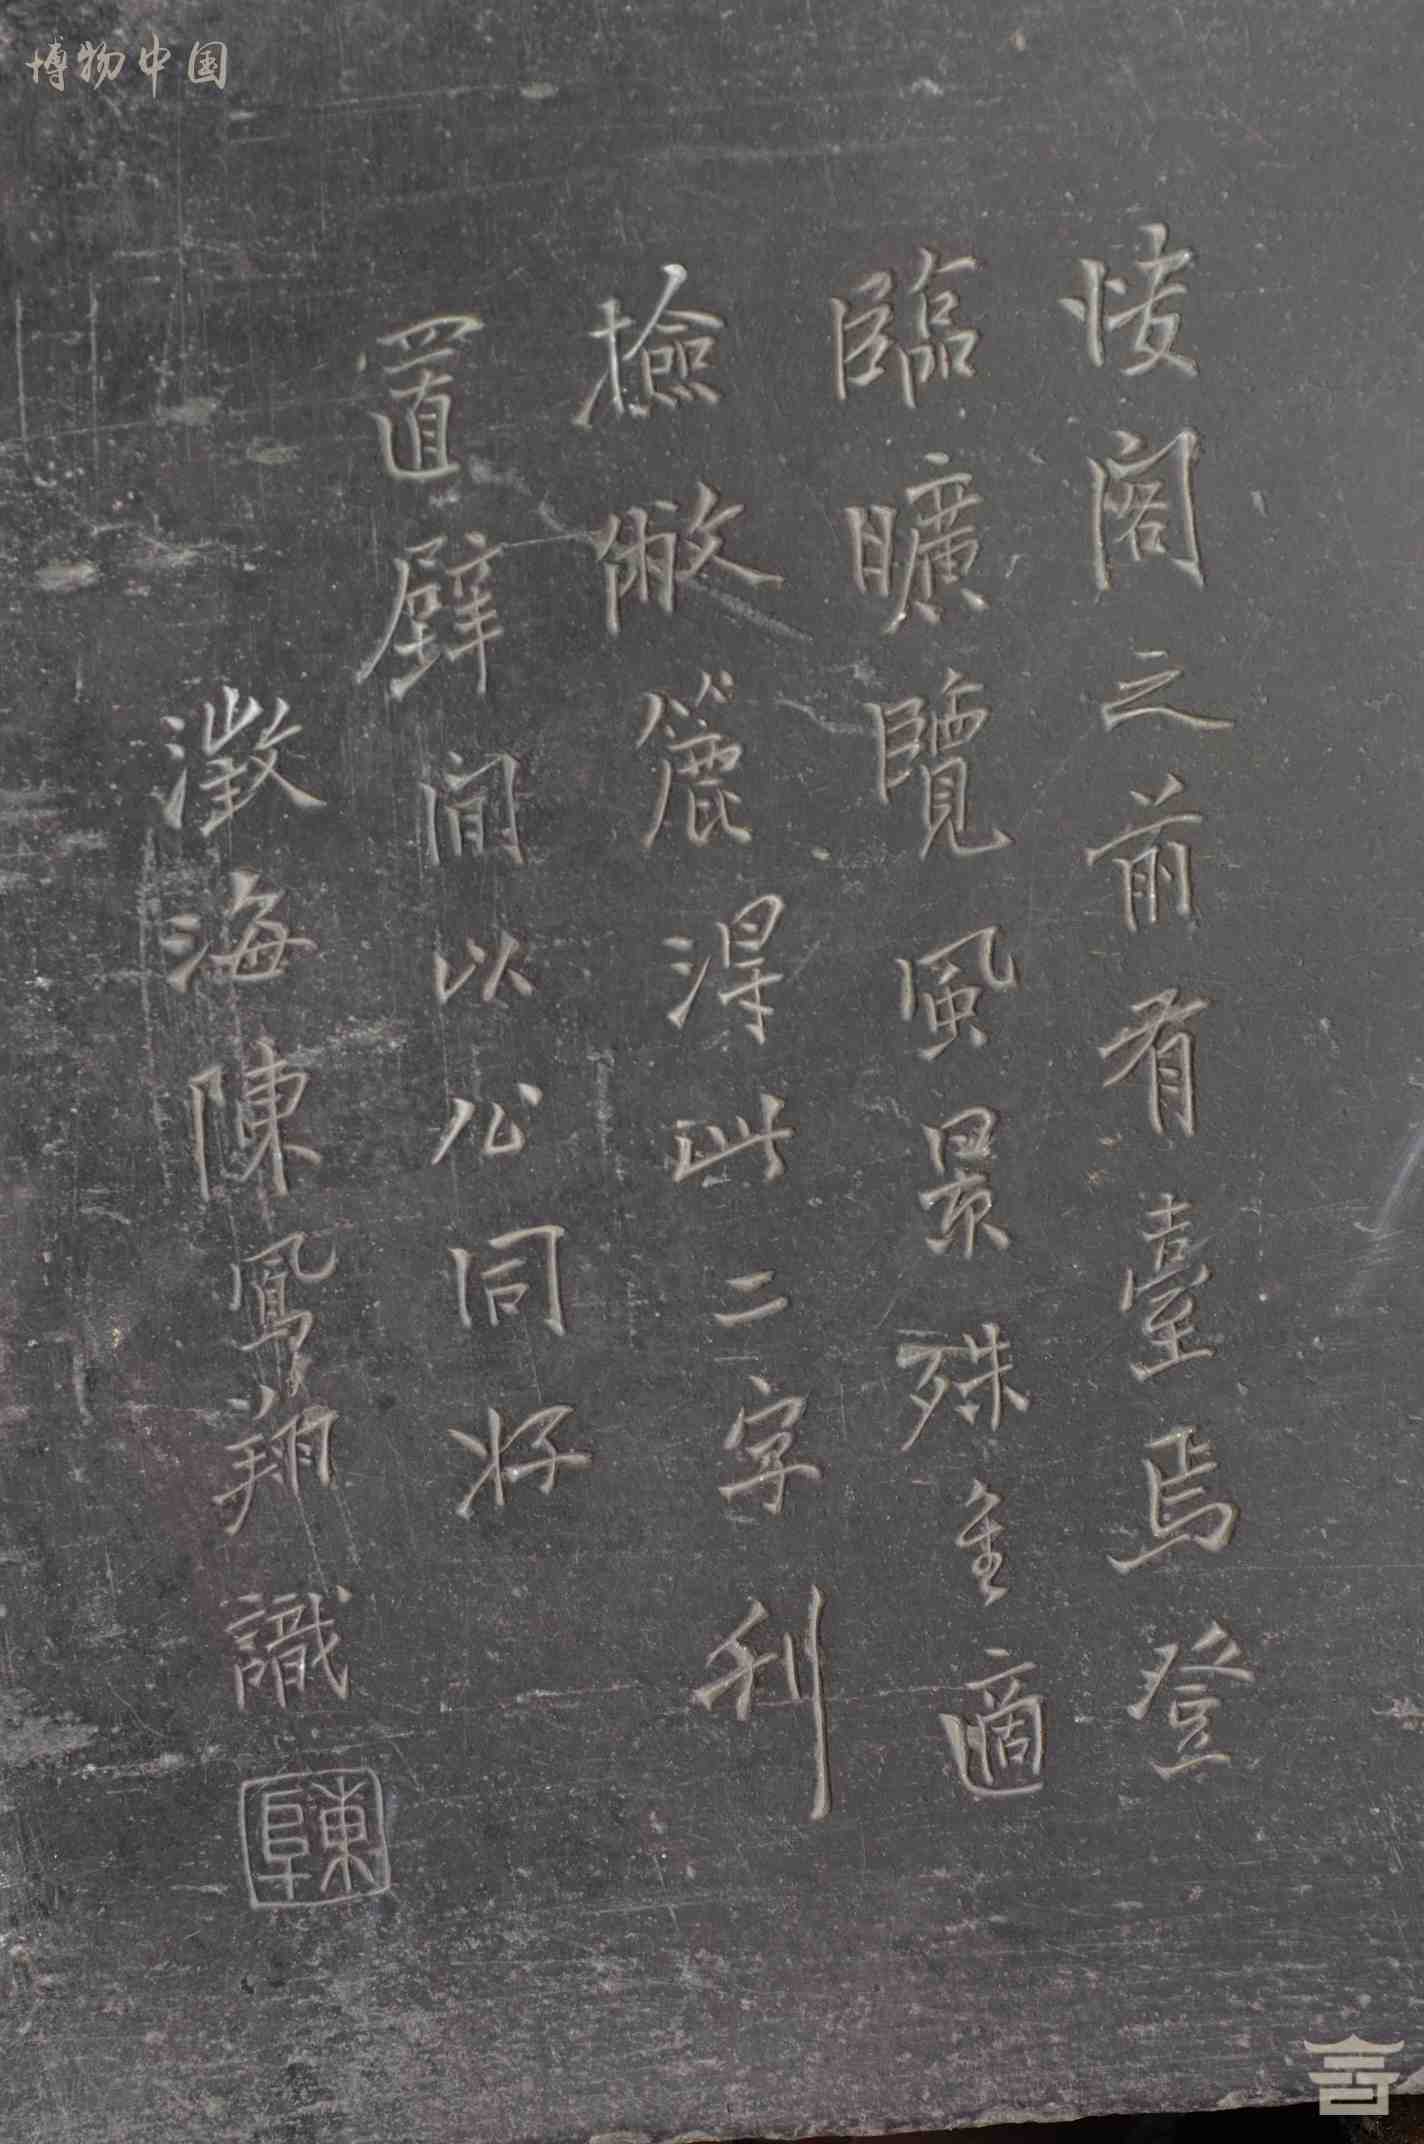 博物中国
悽閣之前有臺焉登
臨曠覽風景殊佳適
撿敝簏得此二字利
置壁間以公同好
澂海陳鳳翔識
陳